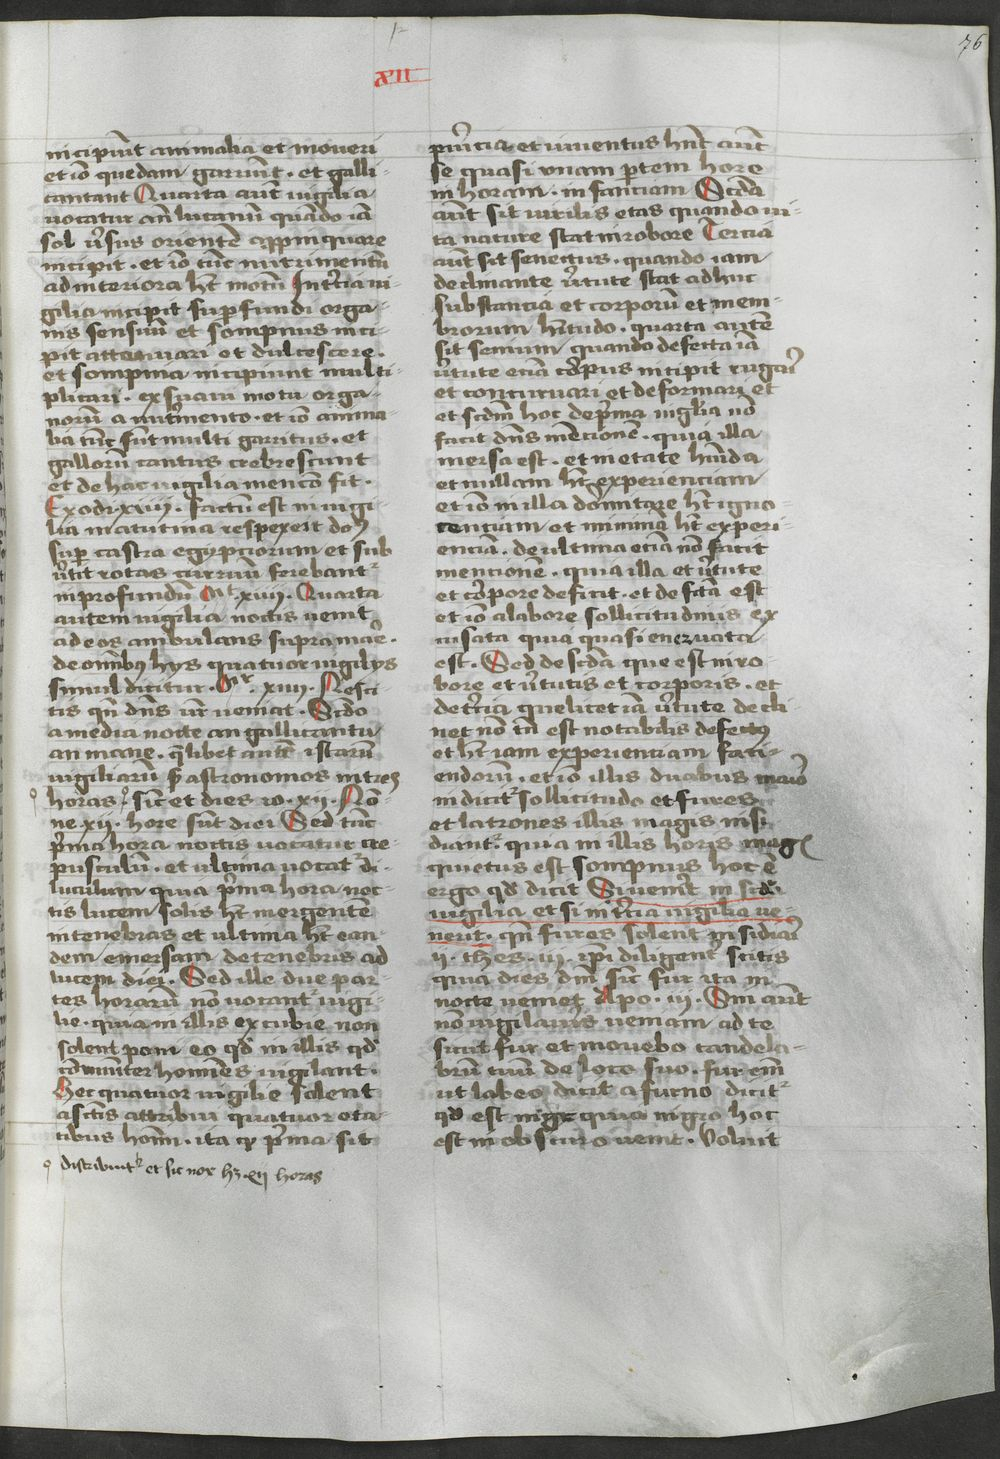 76
XII
incipiūt animalia et moueri
et iō quedam garriūt · et galli
cantant Quarta aūt uigilia
uocatur an̄ lucanū quādo iā
sol ūsus orientē app̄inquare
incipit · et iō tūc nutrimentū
ad interiora hēt motū In t̄cia ui
gilia incipit sup̄fundi orga
nis sensuū et sompnus inci
pit attenuari et dulcescere ·
et sompnia incipiunt multi
plicari · ex suaui motu orga
norū a nut̄mento · et iō anima
lia tūc sūt multi garritus · et
gallorū cantus crebrescunt
et de hac uigilia mencō fit ·
Exodi · xiiii · factum est in uigi
lia matutina respexerit dōs
sup̄ castra egypciorum et sub
ūtit rotas curruū ferebantr
in profundū Mt xiiii · Quarta
autem uigilia noctis uenit
ad eos ambulans supra mar̄ ·
de omībus hys quatuor uigilys
simul dicitur · Mr · xiiii · Nesci
tis qn̄ dn̄s ur̄ ueniat · Sero
a media nocte an gallicantu
an mane · q̄libet autē istarū
uigiliarū s̄ astronomos in tres
horas sic̄ et dies · Io · xii · Nō
ne xii · hore sūt diei Sed tūc
p̄ma hora noctis uocatur cre
pusculū · et ultima uocatr di
luculum quia p̄ma hora noc
tis lucem solis hēt mergentē
in tenebras et ultima hēt ean
dem emersam de tenebris ad
lucem diei · Sed ille due par
tes horarū nō uocantr uigi
lie · quia in illis excubie non
solent poni eo qd̄ in illis qd̄
cōmuniter homīes uigilant ·
Hec quatuor uigilie solent
a sc̄tis attribui quatuor eta
tibus homī · ita q̄ p̄ma sit
distribuūtr et sic nox hz · xii horas
pu̅icia et iuuentus hn̄t aūt
se quasi unam p̄tem hore
in horam · in fanciam Scd̄a
aūt sit uirilis etas quando ui
ta nature stat in robore Tercia
aūt sit senectus · quando iam
declinante ūtute stat adhuc
substancia et corporū et mem
brorum hītudo · quarta autē
sit senium quando defecta iā
ūtute eciā corpus incipit rugari
et concuruari et deformari et
et scdm̄ hoc de p̄ma uiglia nō
facit dn̄s mēcionē · quia illa
mersa est · et in etate hūida
et nullam hēt experienciam
et iō in illa dormitare hēt igno
renciam et minimā hēt experi
enciā · de ultima eciā nō facit
mencionē · quia illa et ūtute
et corpore deficit · et defctā est
et iō a labore sollicitudinis ex
cusata quia quasi eneruata
est · Sed de scd̄a que est in ro
bore et ūtutis et corporis · et
de t̄cia que licet iā ūtute decli
net nō tn̄ est notabilis defectus
et hēt iam experienciam faci
endorū · et iō illis duabus maior
indicitr sollicitudo et fures
et latrones illis magis insi
diantr quia in illis horis magis
quietus est sompnus hoc ē
ergo qd̄ dicit Si uenit̄ in scd̄a
uigilia et si in t̄cia uigilia ue
nerit · qn̄ fures solent insidiari
ii · thes · iii · ip̄i diligentr scitis
quia dies dn̄i sic̄ fur ita in
nocte ueniet Apo · iii · Qm̄ aūt
nō uigilaueris ueniam ad te
sicut fur et mouebo candela
brū tuū de loco suo · fur em̄
ut labeo dicit a furuo dicitr
qd̄ est nigr̄ quia nigro hoc
est in obscuro uenit · Voluit